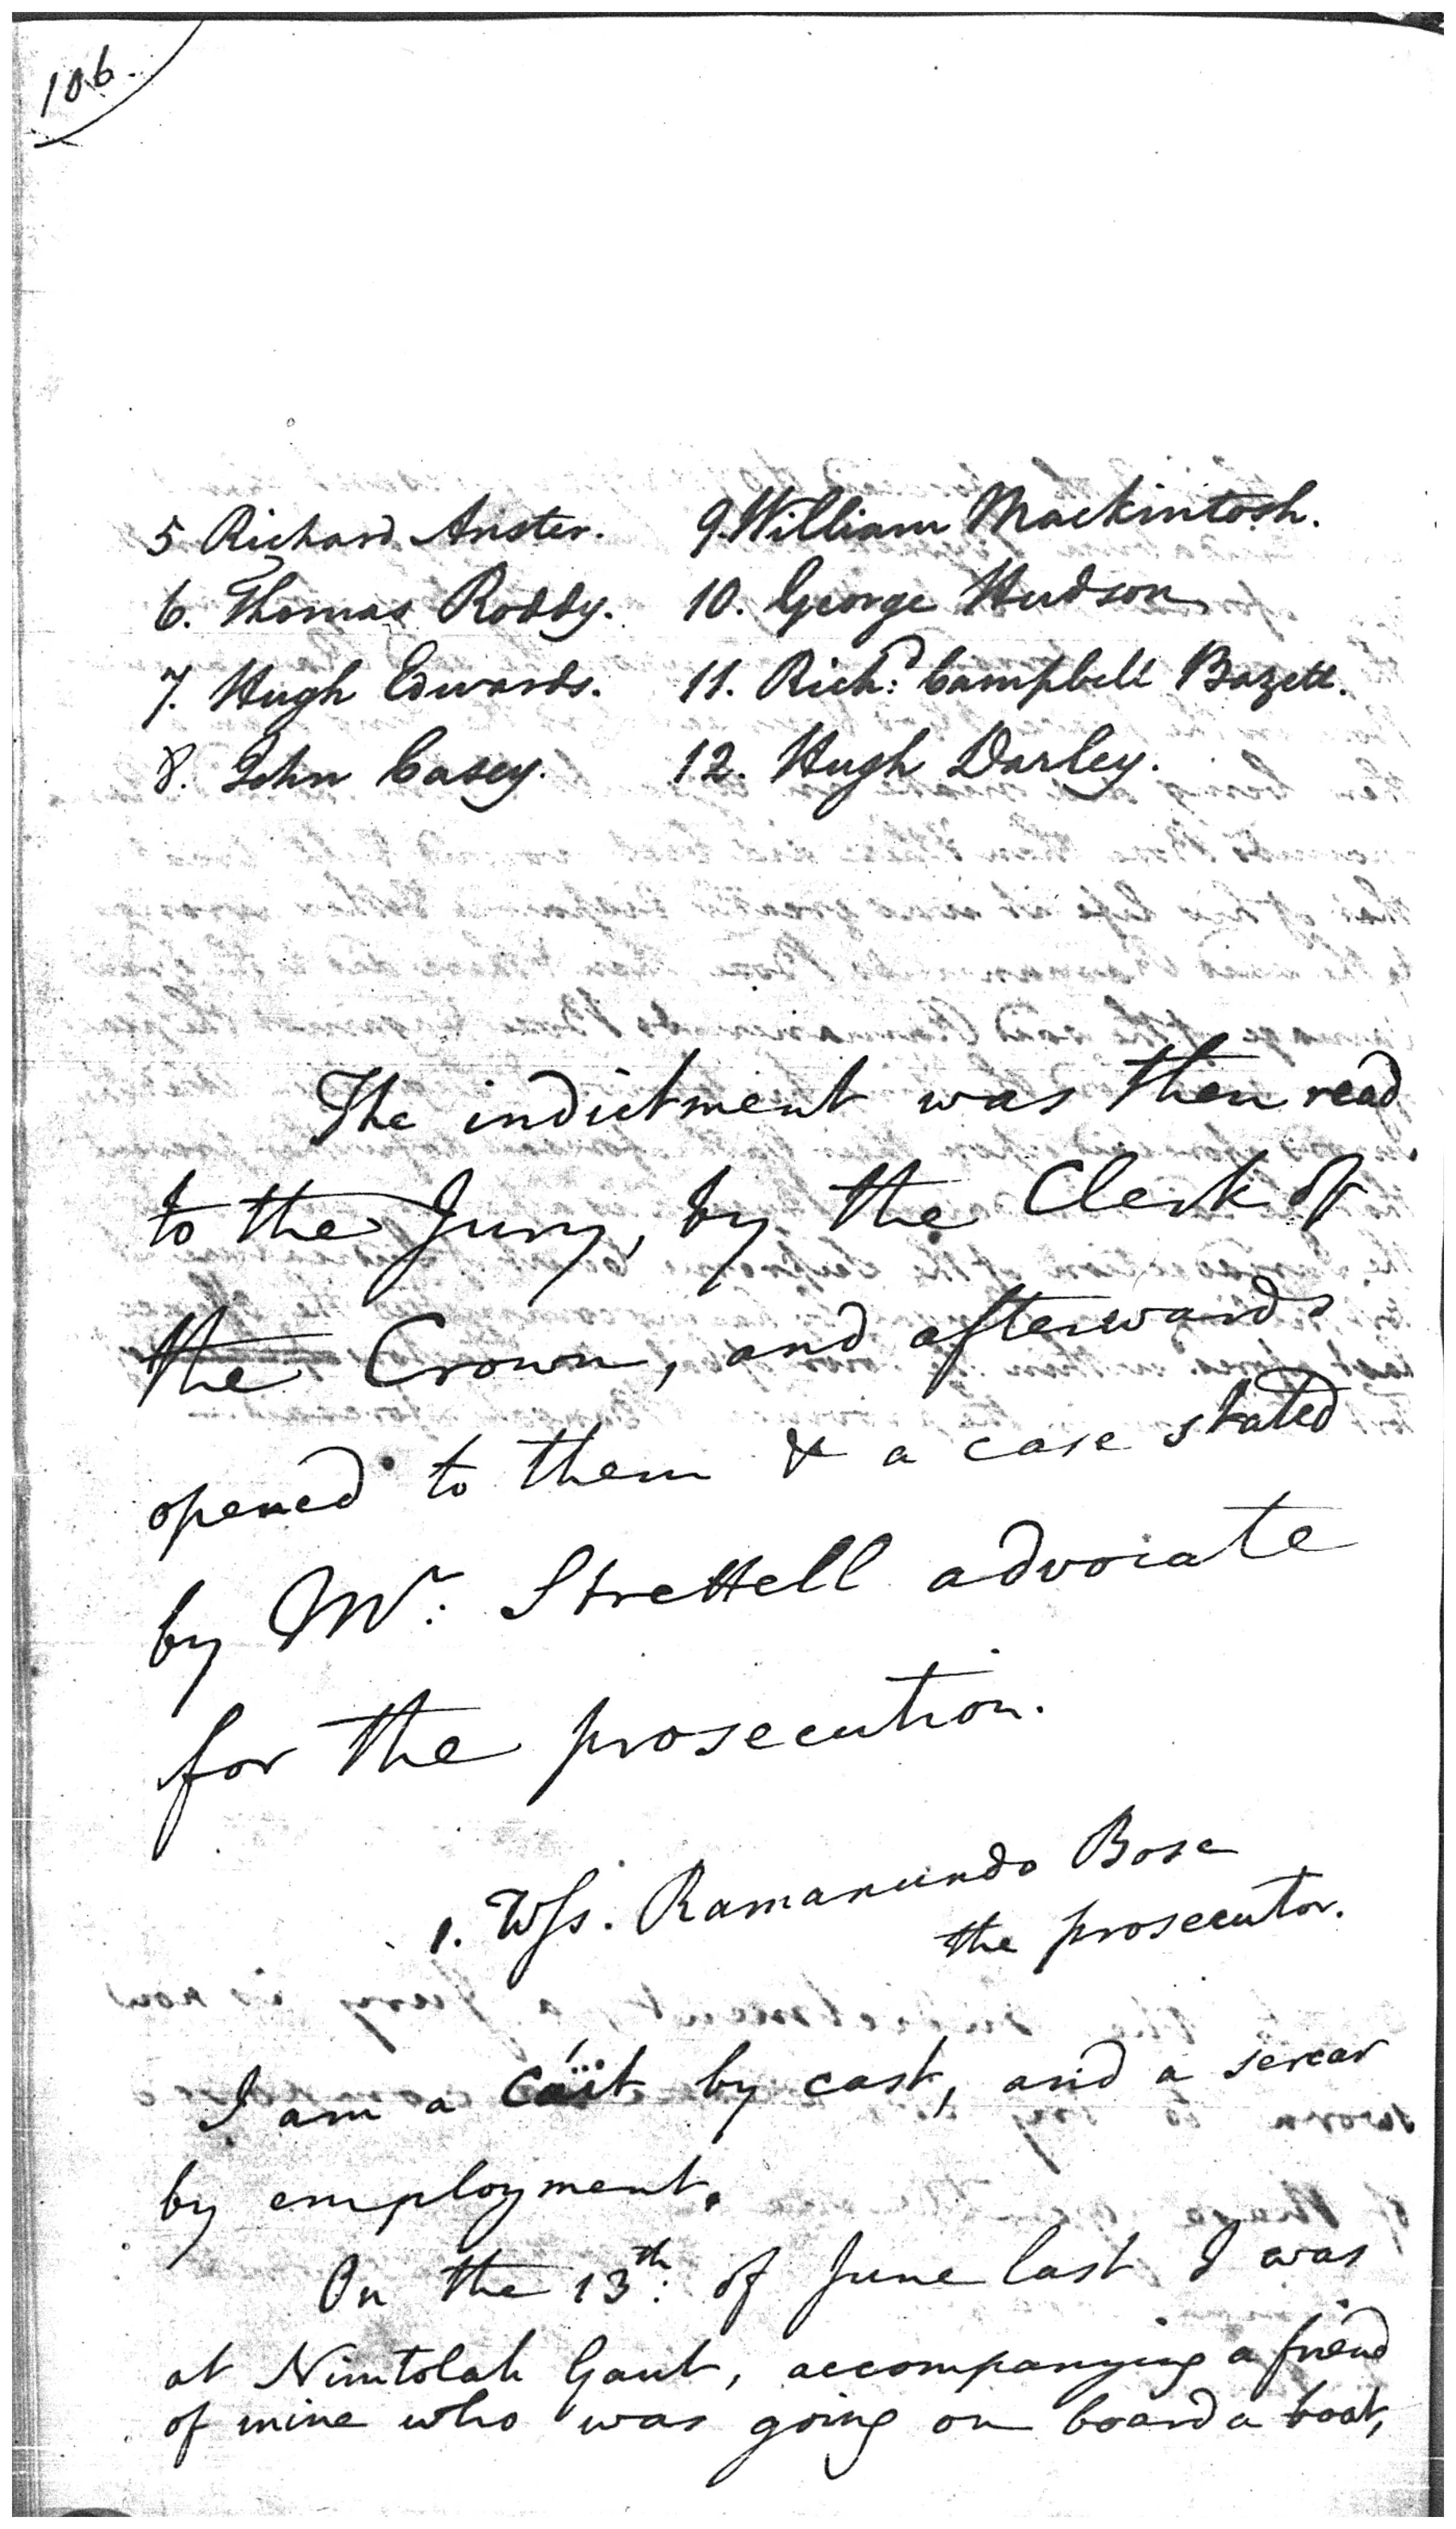 106.
5 Richard Anster. 9. William Mackintosh.
6. Thomas Roddy. 10. George Hudson
7. Hugh Edwards. 11. Rich:d Campbell Bazett.
8. John Casey. 12. Hugh Darley.
The indictment was then read
to the Jury, by the Clerk of
the Crown, and afterwards
opened to them & a case stated
by Mr: Strettell advocate
for the prosecution.
1. Wss. Ramanundo Bose
the prosecutor.
I am a Cäit by cast, and a sercar
by employment.
On the 13th: of June last I was
at Nimtolah Gaut, accompanying a friend
of mine who was going on board a boat,